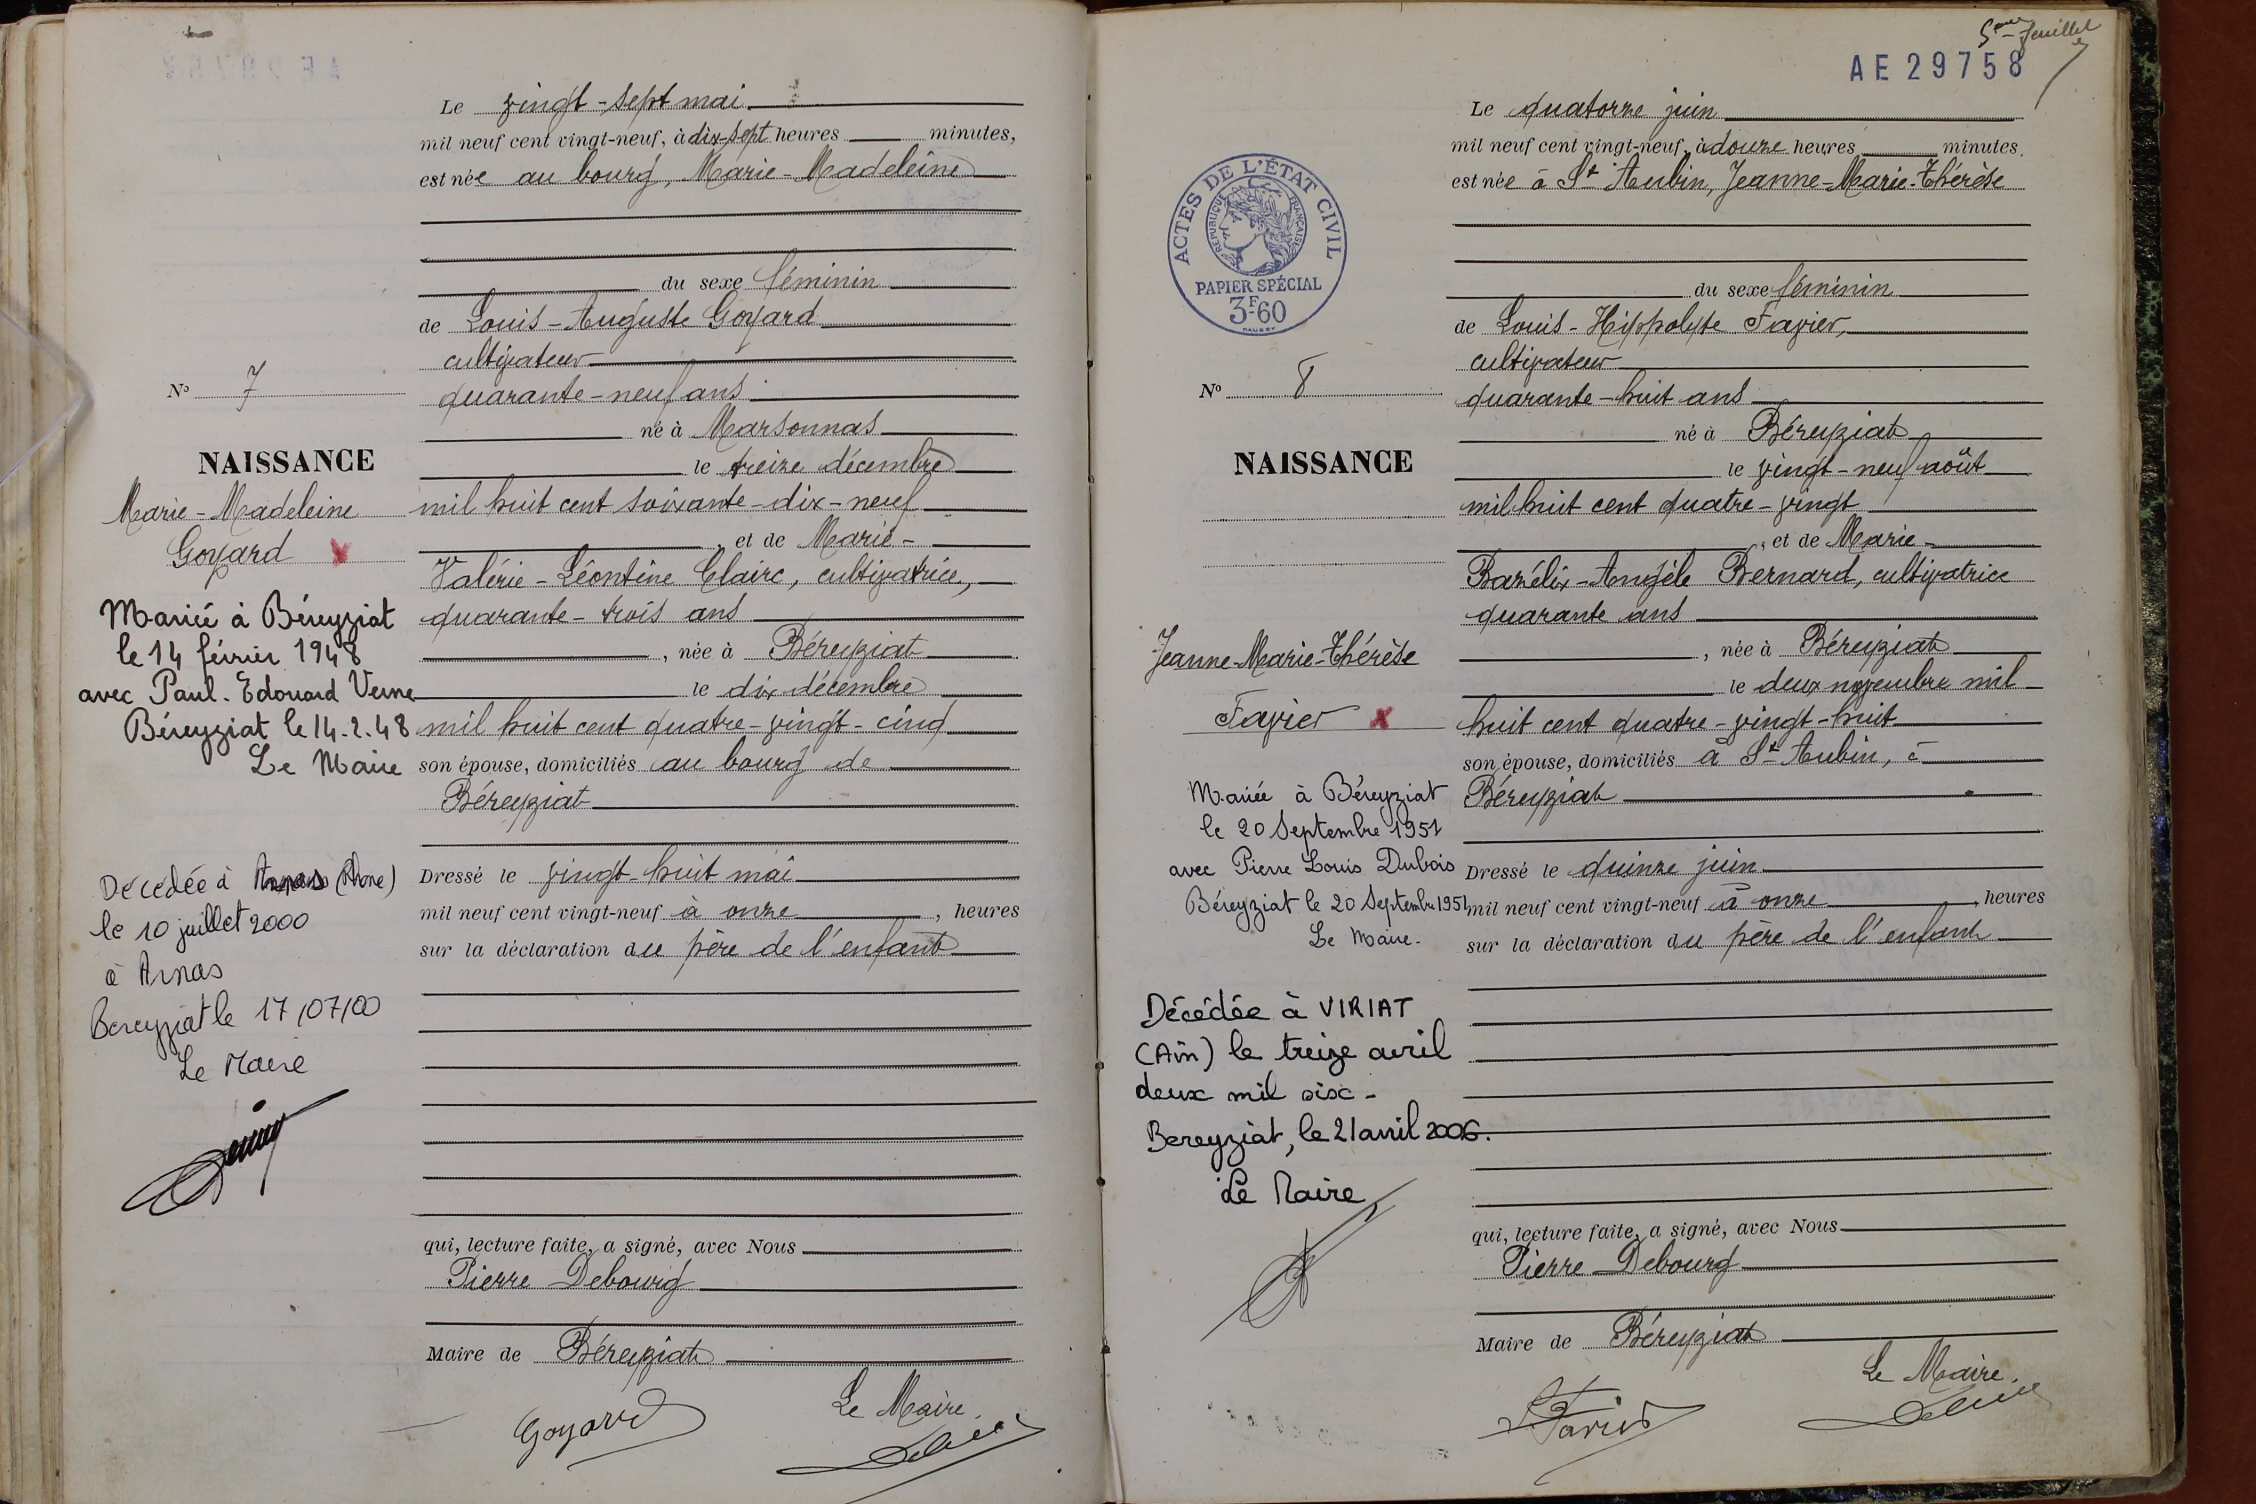 Le vingt-sept mai
mil neuf cent vingt-neuf, à dix-sept heures minutes,
est née au bourg, Marie-Madeleine
du sexe féminin
de Louis-Auguste Goyard
cultivateur
quarante-neuf ans
né à Marsonnas
le treize décembre
mil huit cent soixante-dix-neuf
, et de Marie-
Valérie-Léontine Claire, cultivatrice,
quarante-trois ans
, née à Béreyziat
le dix décembre
mil huit cent quatre-vingt-cinq
son épouse, domiciliés au bourg de
Béreyziat
Dressé le vingt-huit mai
mil neuf cent vingt-neuf à onze , heures
sur la déclaration du père de l'enfant
qui, lecture faite, a signé, avec Nous
Pierre Debourg
Maire de Béreyziat
Le Maire
Goyard
N° 7
NAISSANCE
Marie-Madeleine
Goyard x
Mariée à Béreyziat
le 14 février 1948
avec Paul-Edouard Verne
Béreyziat le 14.2.48
Le Maire
Décédée à (Rhône)
le 10 juillet 2000
à Arnas
Bereyziat le 17/07/00
Le Maire
5me feuillet
AE 29758
Le quatorze juin
mil neuf cent vingt-neuf, à douze heures minutes.
est née à St Aubin, Jeanne-Marie-Thérèse
du sexe féminin
de Louis-Hippolyte Favier,
cultivateur
quarante-huit ans
né à Béreyziat
le vingt-neuf août
mil huit cent quatre-vingt
, et de Marie-
Bazélix-Angèle Bernard, cultivatrice
quarante ans
, née à Béreyziat
le deux novembre mil
huit cent quatre-vingt-huit
son épouse, domiciliés à St Aubin, à
Béreyziat
Dressé le quinze juin
mil neuf cent vingt-neuf à onze , heures
sur la déclaration du père de l'enfant
qui, lecture faite, a signé, avec Nous
Pierre Debourg
Maire de Béreyziat
Le Maire
Favier
ACTES DE L'ÉTAT CIVIL
RÉPUBLIQUE FRANÇAISE
PAPIER SPÉCIAL
3F60
N° 8
NAISSANCE
Jeanne-Marie-Thérèse
Favier x
Mariée à Béreyziat
le 20 Septembre 1951
avec Pierre Louis Dubois
Béreyziat le 20 Septembre 1951
Le Maire.
Décédée à VIRIAT
(Ain) le treize avril
deux mil six -
Bereyziat, le 21 avril 2006.
Le Maire